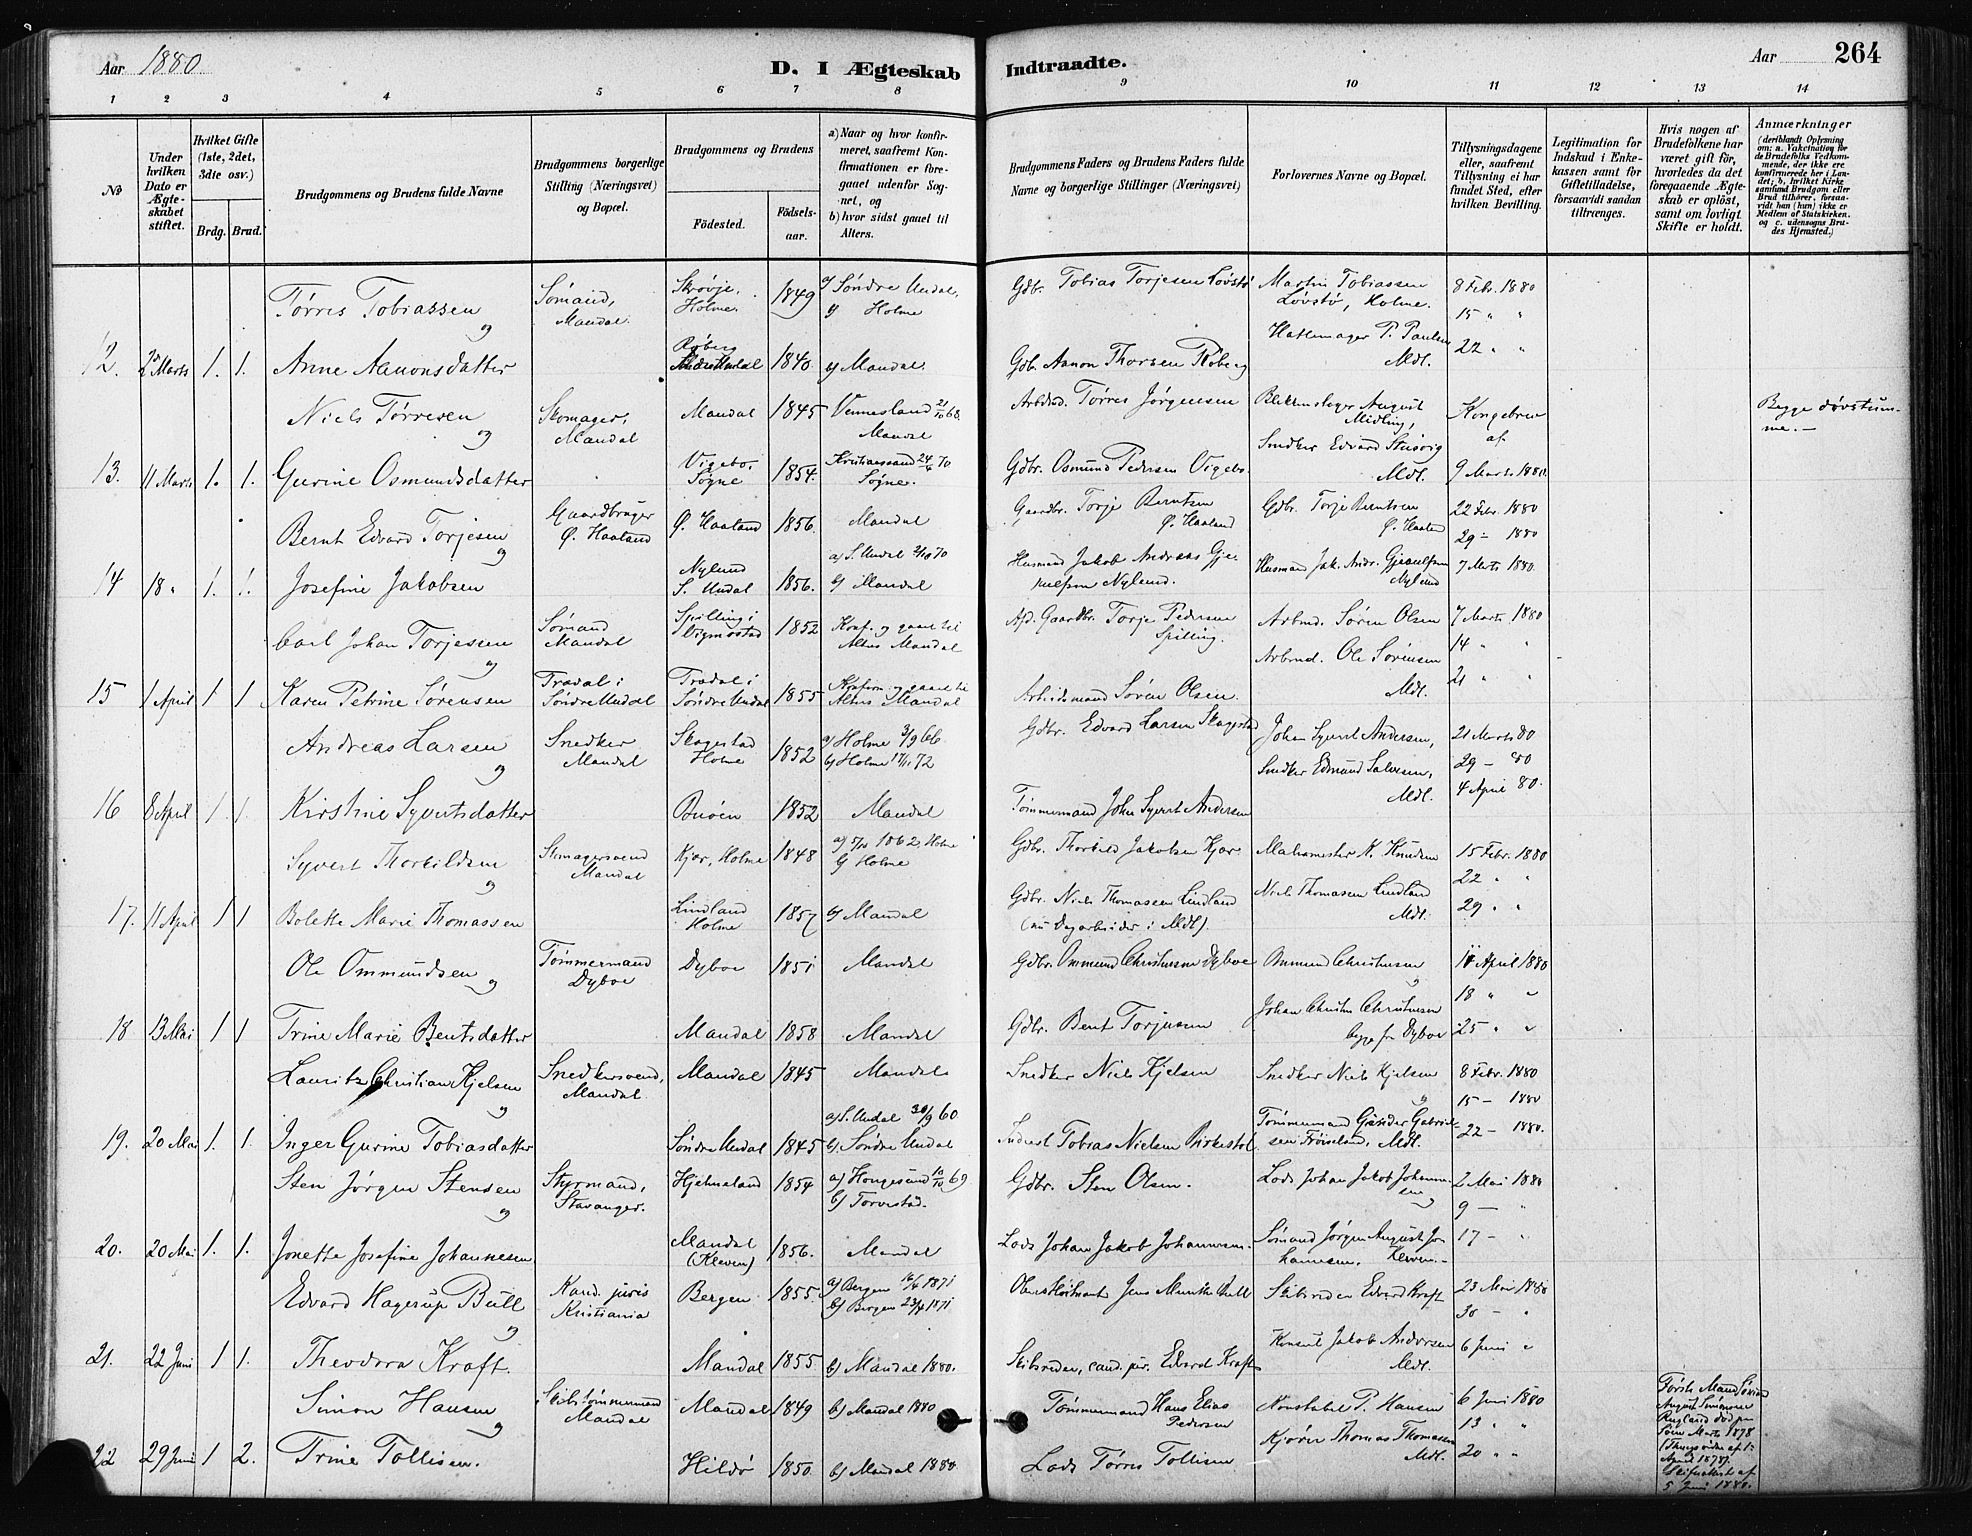 Aar 1880
D. I Ægteskab Indtraadte.
Aar
264
1 2 3 4 5 6 7 8 9 10 11 12 13 14
No
Under hvilken Dato er Ægteskabet stiftet.
Hvilket Gifte (1ste, 2det, 3die osv.)
Brdg. Brud.
Brudgommens og Brudens fulde Navne
Brudgommens borgerlige Stilling (Næringsvei) og Bopæl.
Brudgommens og Brudens
Födested.
Födselsaar.
a) Naar og hvor konfirmeret, saafremt Konfirmationen er foregaaet udenfor Sognet, og
b) hvor sidst gaaet til Alters.
Brudgommens Faders og Brudens Faders fulde Navne og borgerlige Stillinger (Næringsvei)
Forlovernes Navne og Bopæl.
Tillysningsdagene eller, saafremt Tillysning ei har fundet Sted, efter hvilken Bevilling.
Legitimation for Indskud i Enkekassen samt for Giftetilladelse, forsaavidt saadan tiltrænges.
Hvis nogen af Brudefolkene har været gift för, hvorledes da det foregaaende Ægteskab er oplöst, samt om lovligt Skifte er holdt.
Anmærkninger
(deriblandt Oplysning om: a. Vakcination for de Brudefolks Vedkommende, der ikke ere konfirmerede her i Landet; b. hvilket Kirkesamfund Brudgom eller Brud tilhörer, forsaavidt han (hun) ikke er Medlem af Statskirken. og c. udensogns Brudes Hjemsted.)
Tørres Tobiassen og
Sømand, Mandal.
Skrøvje, Holme. 1849
a) Søndre Undal,
b) Holme
Gdbr. Tobias Torjesen Løvstø
Martin Tobiassen Løvstø, Holme.
8 Febr. 1880
15 " "
12. Marts 1. 1. Anne Aanonsdatter
Røberg 1840. b) Mandal.
Gdb. Aanon Thorsen Røberg
Hattemager P. Paulsen Mdl.
22 " "
Niels Tørresen og
Skomager, Mandal
Mandal 1845
Vennesland 21/10 68.
Mandal
Arbmd. Tørres Jørgensen
Blikkenslager August Midling,
Kongebrev af
Begge døvstumme.-
13. 11 Marts 1. 1. Gurine Osmundsdatter
Vigebo, Søgne 1854.
Kristianssand 24/4 70
Søgne.
Gdbr. Osmund Pedersen Vigebo
Snedker Edvard Stusvig Mdl.
9 Marts 1880.
Bernt Edvard Torjesen og
Gaardbruger Ø. Haaland
Ø. Haaland 1856. Mandal
Gaardbr. Torje Berntsen Ø. Haaland
Gdbr. Torje Berntsen Ø. Haaland
22 Febr. 1880
29 - 1880
14 18 " 1. 1. Josefine Jakobsen
Nylund S. Undal 1856.
a) S. Undal 2/10 70
b) Mandal
Husmand Jakob Andreas Gjerulfsen Nylund.
Husmand Jak. Andr. Gjerulfsen Nylund
7 Marts 1880.
Carl Johan Torjesen og
Sømand Mandal
Spilling i Vigmostad 1852
Konf. og gaaet til Alters Mandal
Afd. Gaardbr. Torje Pedersen Spilling.
Arbmd. Søren Olsen
7 Marts 1880
14 " "
15 1 April 1 1 Karen Petrine Sørensen
Trædal i Søndre Undal
Trædal i Søndre Undal 1855
Konfirm. og gaaet til Alters Mandal
Arbeidsmand Søren Olsen.
Arbmd. Ole Sørensen Mdl.
21 " "
Andreas Larsen og
Snedker Mandal
Skagestad Holme 1852
a) Holme 3/9 66
b) Holme 17/11 72
Gdbr. Edvard Larsen Skagestad
Johan Syvert Andersen,
21 Marts 80
29 - 80
16 8 April 1 1. Kirstine Syvertsdatter
Buøen 1852 Mandal
Tømmermand Johan Syvert Andersen
Snedker Edmund Salvesen, Mdl.
4 April 80.
Syvert Thorkildsen og
Skomagersvend Mandal
Kjær, Holme 1848
b) Holme
Gdbr. Thorkild Jakobsen Kjær.
Malermester K. Knudsen
15 Febr. 1880
22 " "
17. 11 April 1 1 Bolette Marie Thomassen
Lindland Holme 1857 b) Mandal
Gdbr. Niels Thomassen Lindland (nu Dagarbeider i Mdl).
Niels Thomassen Lindland Mdl.
29 " "
Ole Ommundsen og
Tømmermand Dyboe
Dyboe 1851 Mandal
Gdbr. Ommund Christensen Dyboe
Ommund Christensen og
11 April 1880
18 " "
18 13 Mai 1 1 Trine Marie Bentsdatter
Mandal 1858 Mandal
Gdbr. Bent Torjesen
Johan Christen Christensen begge fra Dyboe
25 " "
Lauritz Christian Kjelsen og
Snedkersvend, Mandal.
Mandal 1845 Mandal
Snedker Niels Kjelsen
Snedker Niels Kjelsen og
8 Febr. 1880
15 - 1880
19. 20 Mai 1. 1. Inger Gurine Tobiasdatter
Søndre Undal 1845
a) S. Undal 30/9 60
b) Søndre Undal
Tobias Nielsen Birkestol
Tømmermand Gabrielsen Frøiseland, Mdl.
22 - 1880.
Sten Jørgen Stensen og
Styrmand, Stavanger.
Hjelmeland 1854
a) Haugesund 10/10 69
b) Torvestad.
Gdbr. Sten Olsen.
Lods Johan Jakob Johannessen og
2 Mai 1880
9 - "
20. 20 Mai 1. 1. Jonette Josefine Johannesen
Mandal (Kleven) 1856. Mandal
Lods Johan Jakob Johannesen.
Sømand Jørgen August Johannesen, Kleven.-
17 - "
Edvard Hagerup Bull og
Kand. juris Kristiania
Bergen 1855.
a) Bergen 16/4 1871
b) Bergen 23/4 1871.
Jens Munthe Bull
Skibsreder Edvard Kraft
23 Mai 1880
30 - "
21. 22 Juni 1 1. Theodora Kraft.
Mandal 1855 b) Mandal 1880.
Skibsreder, cand. jur. Edvard Kraft
Konsul Jakob Andersen Mdl.
6 Juni "
Simon Hansen og
Skibstømmermand Mandal
Mandal 1849 b) Mandal 1880
Tømmermand Hans Elias Pedersen
Konstabel P. Hansen
6 Juni 1880
13 " "
22 29 Juni 1 2. Trine Tollisen.
Hildø 1850. b) Mandal 1880
Lods Tørres Tollisen
Kjører Thomas Thomassen Mdl.
20 " "
Første Mand August Simonsen Ryland død paa Søen Marts 1878
5 Juni 1880.